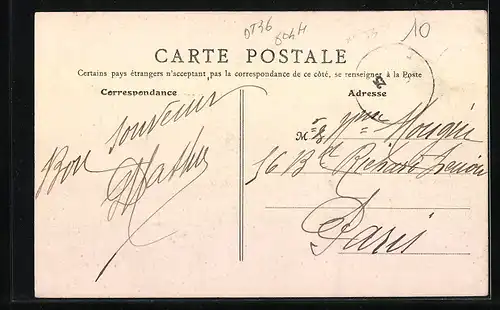 OT36
10
CARTE POSTALE
Certains pays étrangers n'acceptant pas la correspondance de ce côté, se renseigner à la Poste
Correspondance
Bon souvenir
Adresse
M
Mme Mougin
56 Bd Richard Lenoir
Paris